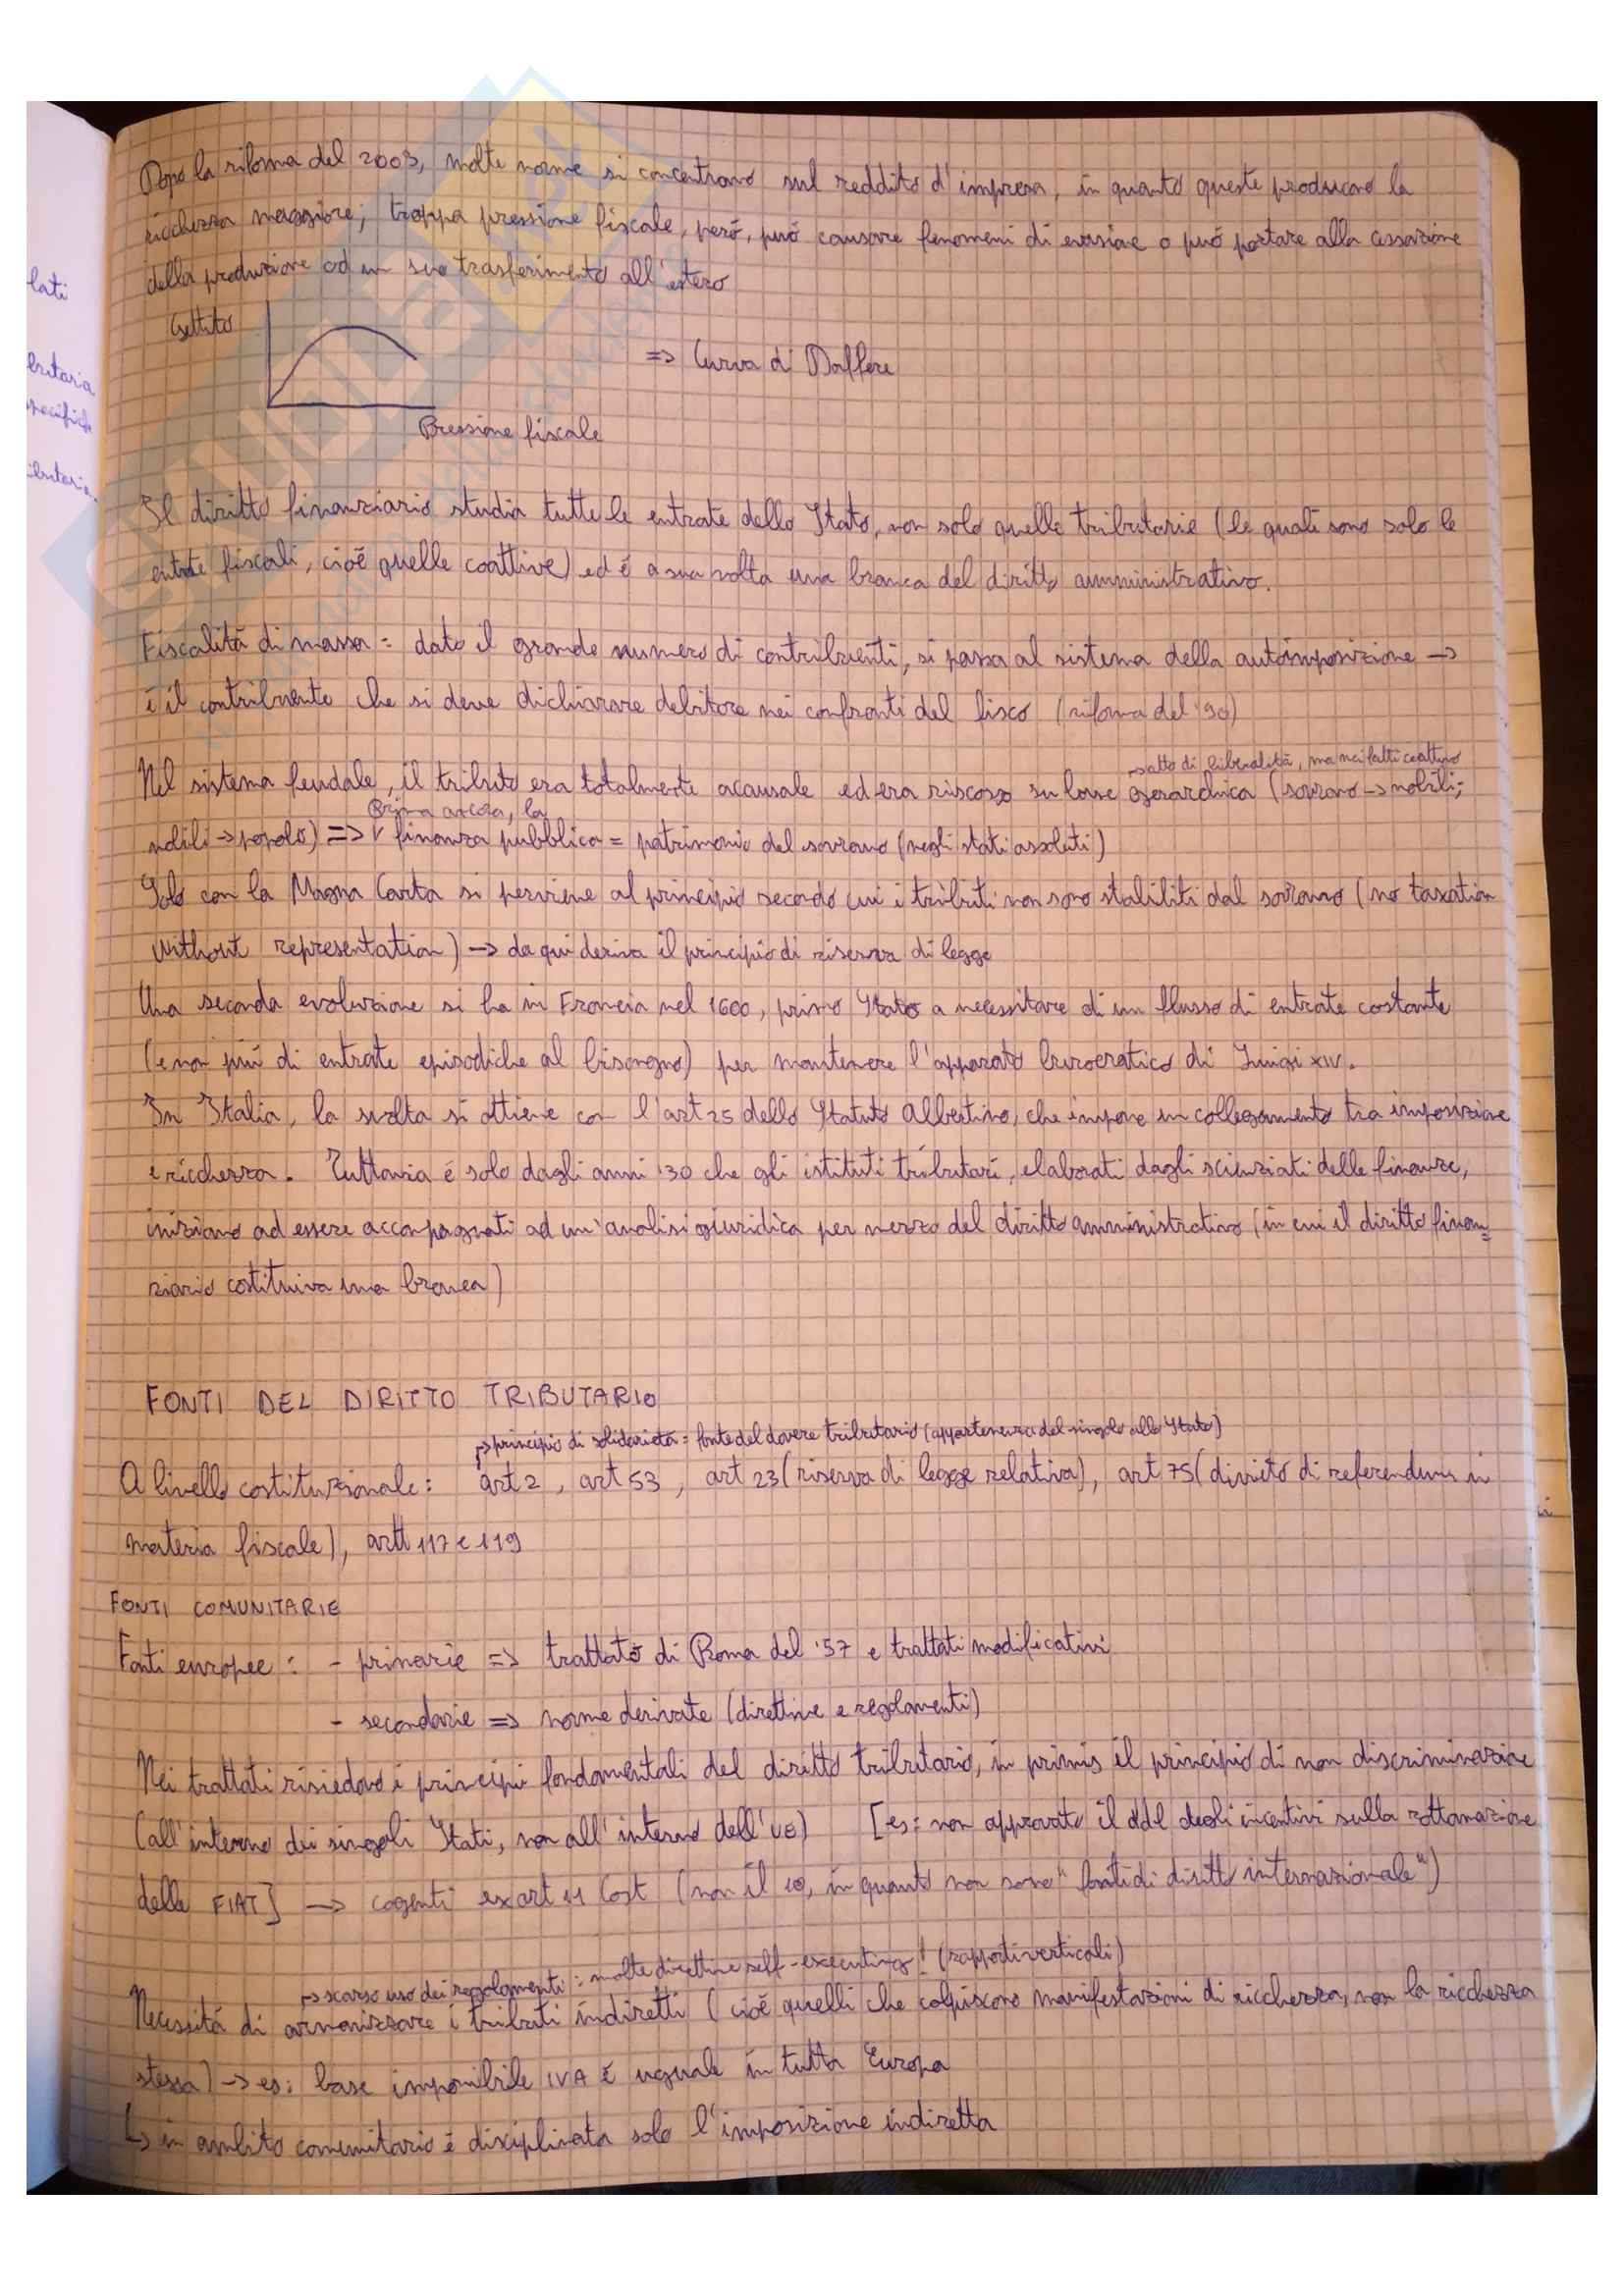 Dopo la riforma del 2003, molte norme si concentrano sul reddito d'impresa, in quanto queste producono la
ricchezza maggiore; troppa pressione fiscale, però, può causare fenomeni di evasione o può portare alla cessazione
della produzione od un suo trasferimento all'estero
lati
Gettito
=> Curva di Dalfere
Pressione fiscale
Il diritto finanziario studia tutte le entrate dello Stato, non solo quelle tributarie (le quali sono solo le
entrate fiscali, cioè quelle coattive) ed è a sua volta una branca del diritto amministrativo.
Fiscalità di massa = dato il grande numero di contribuenti, si passa al sistema della autoimposizione ->
è il contribuente che si deve dichiarare debitore nei confronti del fisco (riforma del '90)
->atto di liberalità, ma nei fatti coattivo
Nel sistema feudale, il tributo era totalmente acausale ed era riscosso su base gerarchica (sovrano -> nobili;
Prima ancora, la
nobili -> popolo) => V finanza pubblica = patrimonio del sovrano (negli stati assoluti)
Solo con la Magna Carta si perviene al principio secondo cui i tributi non sono stabiliti dal sovrano (no taxation
without representation) -> da qui deriva il principio di riserva di legge
Una seconda evoluzione si ha in Francia nel 1600, primo Stato a necessitare di un flusso di entrate costante
(e non più di entrate episodiche al bisogno) per mantenere l'apparato burocratico di Luigi XIV.
In Italia, la svolta si ottiene con l'art 25 dello Statuto Albertino, che impone un collegamento tra imposizione
e ricchezza. Tuttavia è solo dagli anni '30 che gli istituti tributari, elaborati dagli scienziati delle finanze,
iniziano ad essere accompagnati ad un'analisi giuridica per mezzo del diritto amministrativo (in cui il diritto finan=
ziario costituiva una branca)
FONTI DEL DIRITTO TRIBUTARIO
->principio di solidarietà = fonte del dovere tributario (appartenenza del singolo allo Stato)
A livello costituzionale: art 2, art 53, art 23 (riserva di legge relativa), art 75 (divieto di referendum in
materia fiscale), artt 117 e 119
FONTI COMUNITARIE
Fonti europee: - primarie => trattato di Roma del '57 e trattati modificativi
- secondarie => norme derivate (direttive e regolamenti)
Nei trattati risiedono i principi fondamentali del diritto tributario, in primis il principio di non discriminazione
(all'interno dei singoli Stati, non all'interno dell'UE) [es: non approvato il ddl degli incentivi sulla rottamazione
delle FIAT] -> cogenti ex art 11 Cost (non il 10, in quanto non sono "fonti di diritto internazionale")
->scarso uso dei regolamenti: molte direttive self-executing! (rapporti verticali)
Necessità di armonizzare i tributi indiretti (cioè quelli che colpiscono manifestazioni di ricchezza, non la ricchezza
stessa) -> es: base imponibile IVA è uguale in tutta Europa
↳ in ambito comunitario è disciplinata solo l'imposizione indiretta